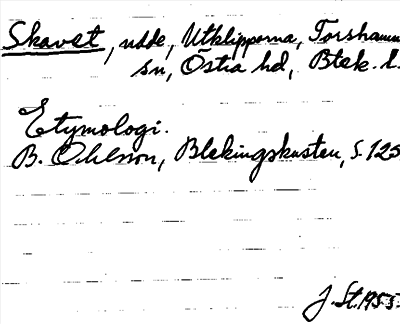 Skavet, udde, Utklipporna, Torshamn
sn, Östra hd, Blek. l.
Etymologi.
B. Ohlsson, Blekingskusten, s. 125
J. St. 1955.